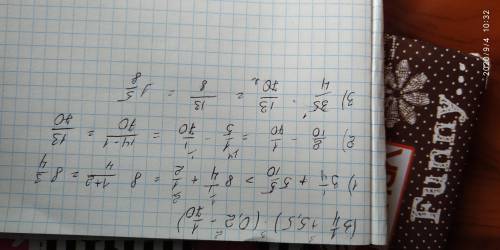 (3 1/4 + 5,5) · (0,2 - 1/70)
1) 3 1/4 + 5 5/10 = 8 1/4 + 1/2 = 8 (1+2)/4 = 8 3/4
2) 2/10 - 1/70 = 1/5 - 1/70 = (14-1)/70 = 13/70
3) 35/4 · 13/70 = 13/8 = 1 5/8
Funny
2020/9/4 10:32